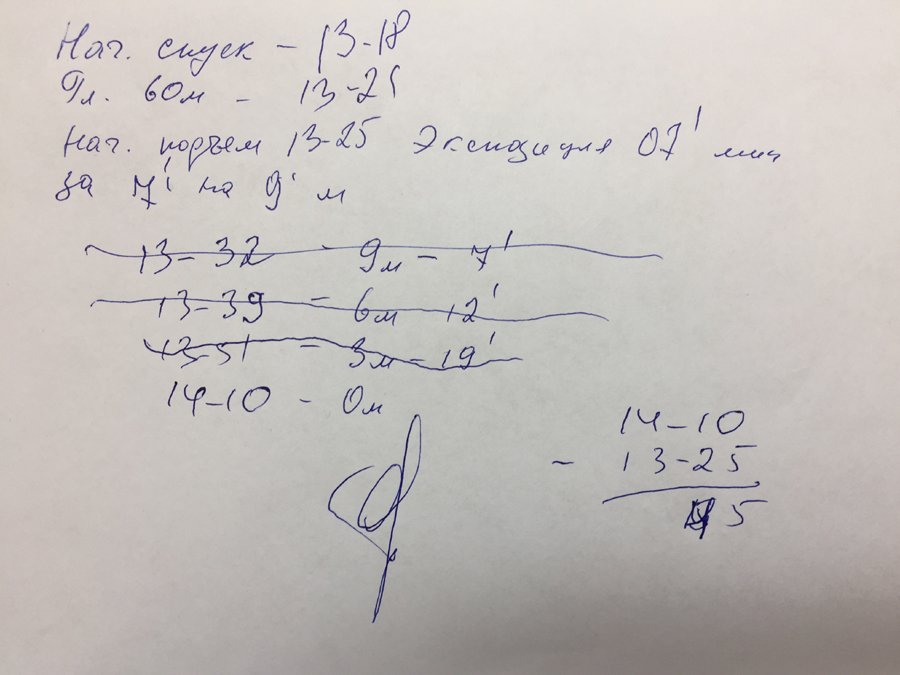 Нач. спуск – 13-18
Гл. 60м – 13-21
Нач. подъем 13-25 Экспозиция 07' мин
за 7' на 9' м
13-32 - 9м - 7'
13-39 = 6м 12'
13-51 = 3м - 19'
14-10 - 0м
14-10
- 13-25
45